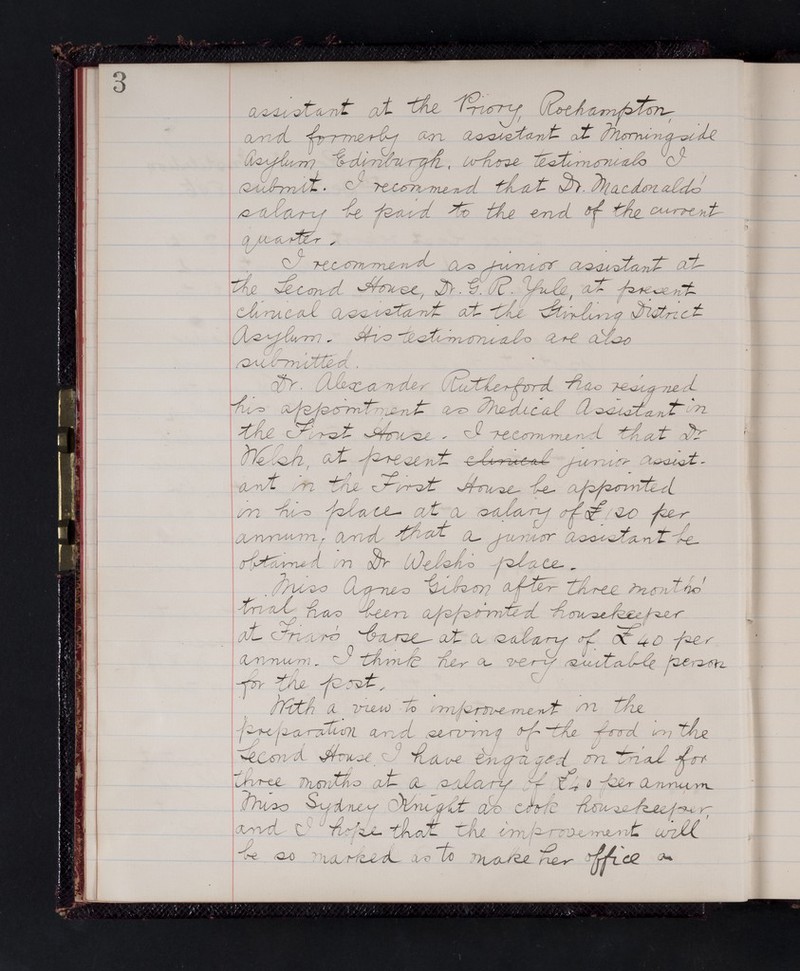 3
assistant at the Priory, Roehampton,
and formerly an assistant at Morningside
Asylum, Edinburgh, whose testimonials I
submit. I recommend that Dr. Macdonalds'
salary be paid to the end of the current
quarter.
I recommend as junior assistant at
the Second House, Dr. G. R. Yule, at present
clinical assistant at the Stirling District
Asylum. His testimonials are also
submitted.
Dr. Alexander Rutherford has resigned
his appointment as Medical Assistant in
the First House. I recommend that Dr
Welsh, at present clinical junior assist-
ant in the First House be appointed
in his place at a salary of £120 per
annum, and that a junior assistant be
obtained in Dr Welsh's place.
Miss Agnes Gibson after three months'
trial has been appointed housekeeper
at Friar's Carse at a salary of £40 per
annum. I think her a very suitable person
for the post.
With a view to improvement in the
preparation and serving of the food in the
Second House I have engaged on trial for
three months at a salary of £40 per annum
Miss Sydney Knight as cook housekeeper,
and I hope that the improvement will
be so marked as to make her office a